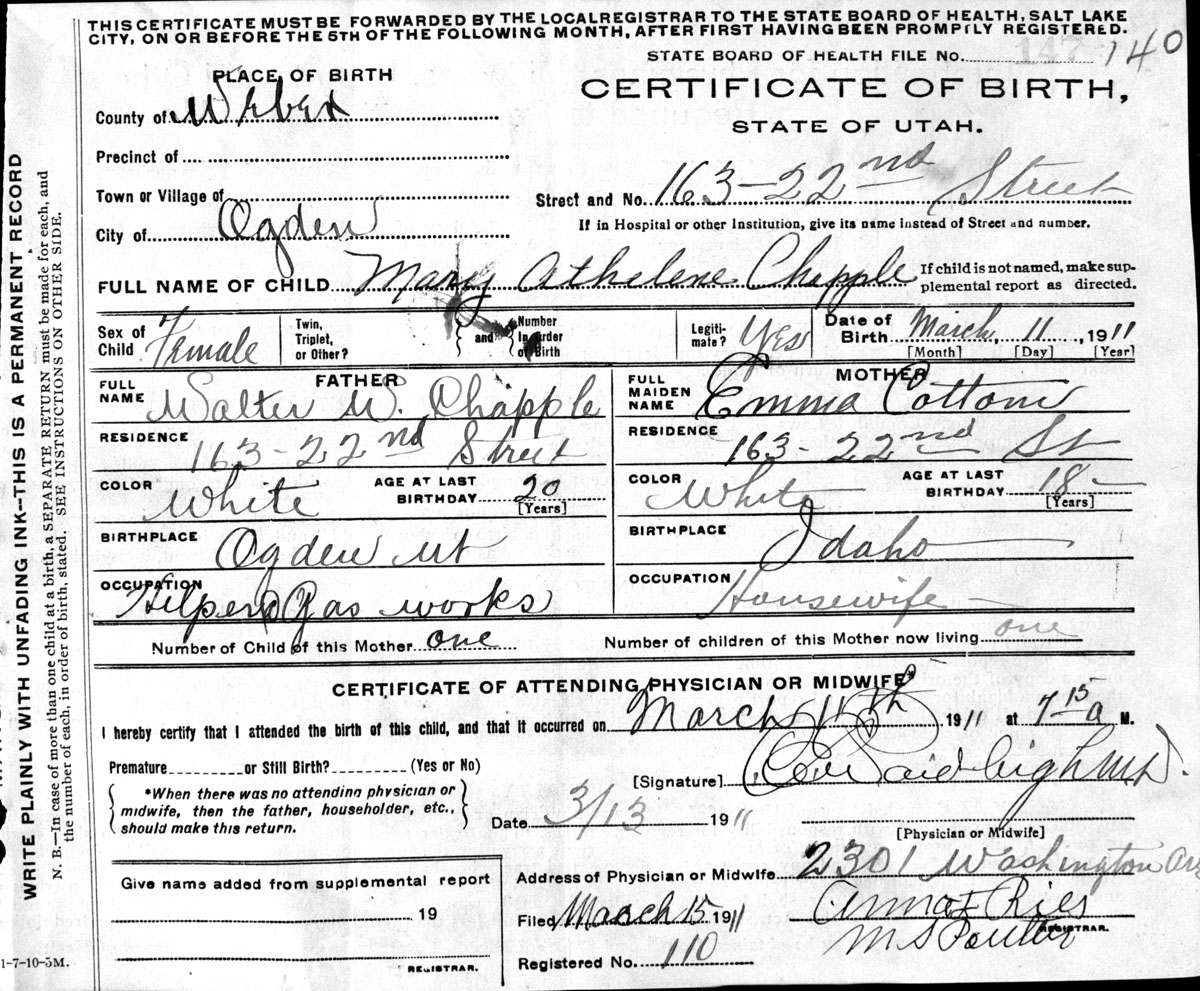 THIS CERTIFICATE MUST BE FORWARDED BY THE LOCALREGISTRAR TO THE STATE BOARD OF HEALTH, SALT LAKE
CITY, ON OR BEFORE THE 5TH OF THE FOLLOWING MONTH, AFTER FIRST HAVING BEEN PROMPTLY REGISTERED.
STATE BOARD OF HEALTH FILE NO. 140
147
PLACE OF BIRTH
CERTIFICATE OF BIRTH,
STATE OF UTAH.
County of Weber
Precinct of
Town or Village of
City of Ogden
Street and No. 163-22nd Street
If in Hospital or other Institution, give its name instead of Street and number.
FULL NAME OF CHILD Mary Athelene Chapple
If child is not named, make sup-
plemental report as directed.
Sex of Child Female
Twin, Triplet, or Other?
and
Number in Order of Birth
Legiti-mate? Yes
Date of Birth March, 11, 1911
[Month] [Day] [Year]
FATHER
FULL NAME Walter W. Chapple
RESIDENCE 163-22nd Street
COLOR White
AGE AT LAST BIRTHDAY 20
[Years]
BIRTHPLACE Ogden Ut
OCCUPATION Helper Gas works
MOTHER
FULL MAIDEN NAME Emma Cottom
RESIDENCE 163-22nd St
COLOR White
AGE AT LAST BIRTHDAY 18
[Years]
BIRTHPLACE Idaho
OCCUPATION Housewife
Number of Child of this Mother one
Number of children of this Mother now living one
CERTIFICATE OF ATTENDING PHYSICIAN OR MIDWIFE*
I hereby certify that I attended the birth of this child, and that it occurred on March 11th, 1911 at 7 15 a M.
Premature or Still Birth? (Yes or No)
[Signature]
*When there was no attending physician or
midwife, then the father, householder, etc.,
should make this return.
Date 3/13 1911
[Physician or Midwife]
Address of Physician or Midwife 2301 Washington Av
Give name added from supplemental report
19
REGISTRAR.
Filed March 15 1911
Anna F Ries
M S Poulter
REGISTRAR.
Registered No. 110
1-7-10-5M.
WRITE PLAINLY WITH UNFADING INK--THIS IS A PERMANENT RECORD
N. B.—In case of more than one child at a birth, a SEPARATE RETURN must be made for each, and
the number of each, in order of birth, stated. SEE INSTRUCTIONS ON OTHER SIDE.